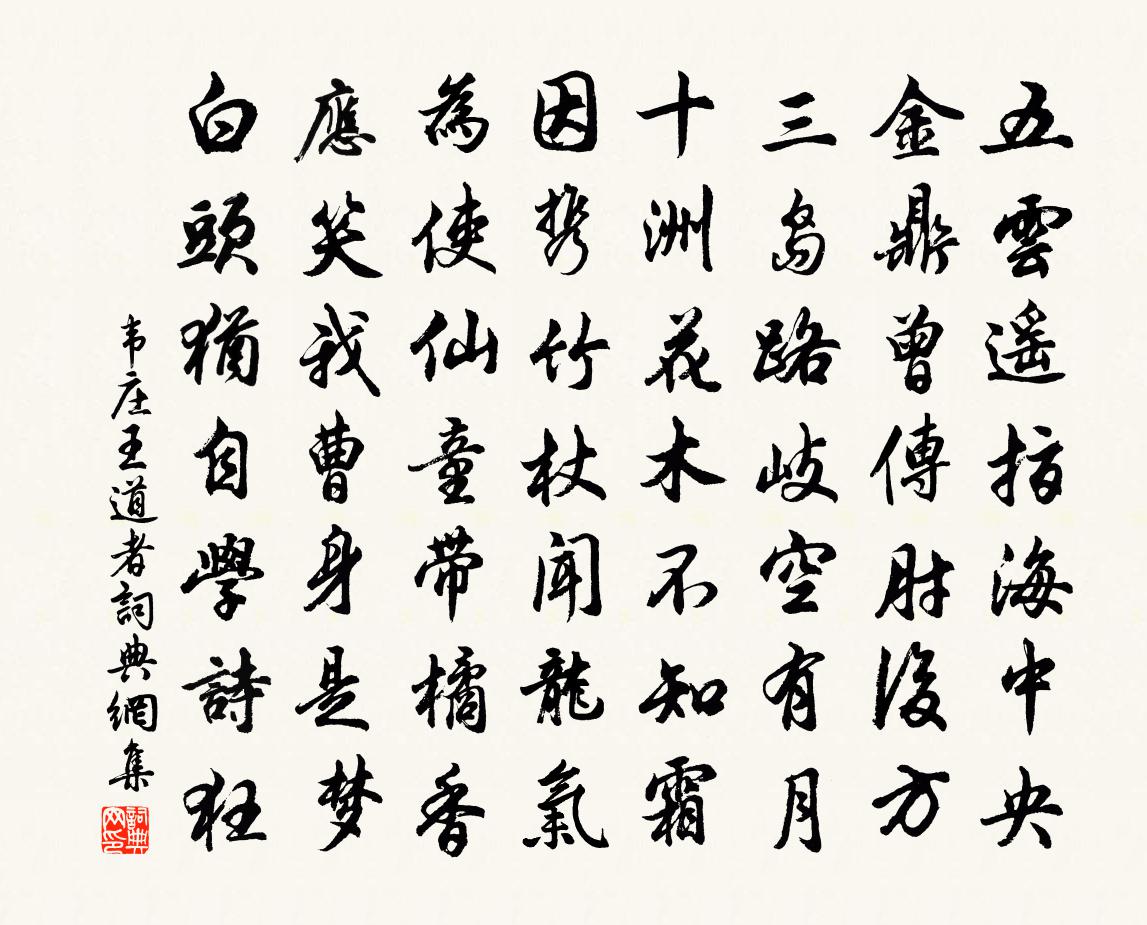 五雲遥指海中央
金鼎曾傳肘後方
三島路岐空有月
十洲花木不知霜
因携竹杖聞龍氣
為使仙童帶橘香
應笑我曹身是梦
白頭猶自學詩狂
韦庄王道者詞典網集
詞典网印